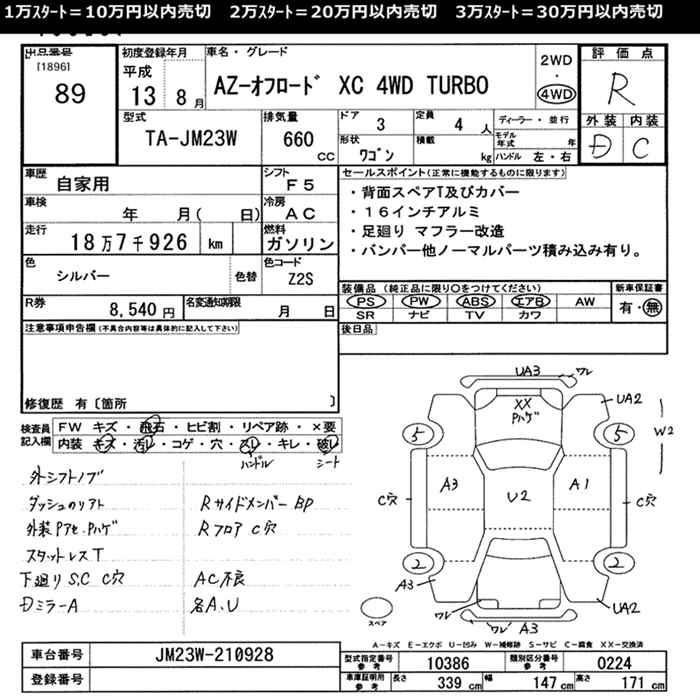 1万スタート=10万円以内売切　2万スタート=20万円以内売切　3万スタート=30万円以内売切
出品番号
[1896]
89
初度登録年月
平成
13 8 月
車名・グレード
AZ-オフロード XC 4WD TURBO
2WD
・
4WD
評価点
R
型式
TA-JM23W
排気量
660
cc
ドア
3
定員
4 人
形状
ワゴン
積載
kg
ディーラー・並行
モデル年式 年
ハンドル 左・右
外装 内装
D C
車歴
自家用
シフト
F5
車検
年 月( 日)
冷房
AC
走行
18万7千926 km
燃料
ガソリン
色
シルバー
色替
色コード
Z2S
R券
8,540円
名変通知期限
月 日
セールスポイント(正常に機能するものに限ります)
・背面スペアT及びカバー
・16インチアルミ
・足廻り マフラー改造
・バンパー他ノーマルパーツ積み込み有り。
装備品(純正品に限り○をつけてください)
PS PW ABS エアB AW
SR ナビ TV カワ
新車保証書
有・無
後日品
注意事項申告欄(不具合内容等は具体的に記入して下さい)
修復歴 有〔箇所 〕
検査員記入欄
FW キズ・飛石・ヒビ割・リペア跡・×要
内装 キズ・汚レ・コゲ・穴・スレ・キレ・破レ
ハンドル シート
外シフトノブ
ダッシュのリアト
外装Pアセ.Pハゲ
スタットレスT
下廻りS.C C穴
DミラーA
RサイドメンバーBP
Rフロア C穴
AC不良
各A.U
UA3 ワレ
XX
Pハゲ
UA2
5 5
W2
A3 U2 A1
C穴 C穴
2 2
A3
UA2
ワレ
ワレ A3
スペア
A-キズ E-エクボ U-凹み W-補修跡 S-サビ C-腐食 XX-交換済
車台番号
JM23W-210928
登録番号
型式指定番号 参考
10386
類別区分番号 参考
0224
車庫証明用 参考
長さ 339 cm
幅 147 cm
高さ 171 cm